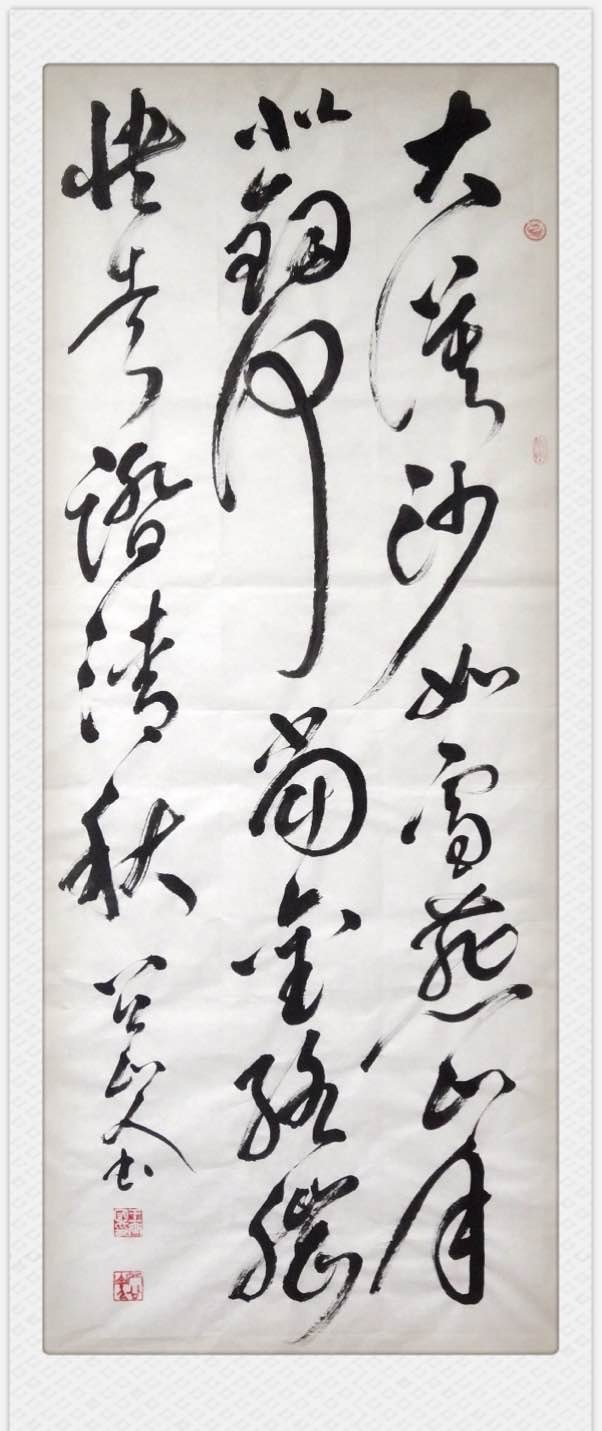 大漠沙如雪燕山月
似鈎何當金絡腦
快走踏清秋
山人書